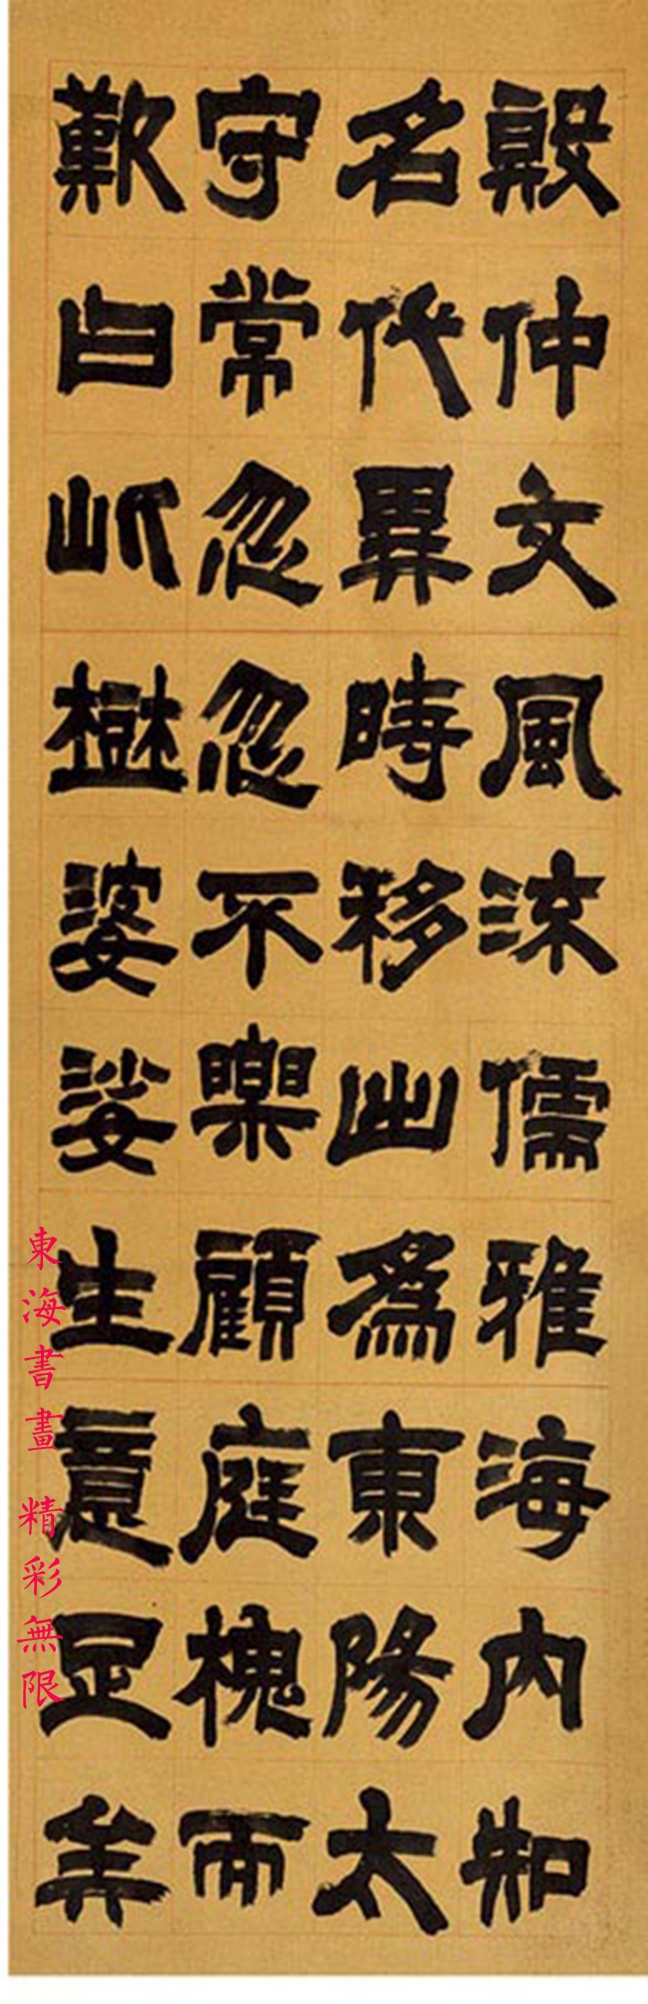 殷仲文風流儒雅海內知
名代異時移出為東陽太
守常忽忽不樂顧庭槐而
歎曰此樹婆娑生意盡矣
東海書畫 精彩無限